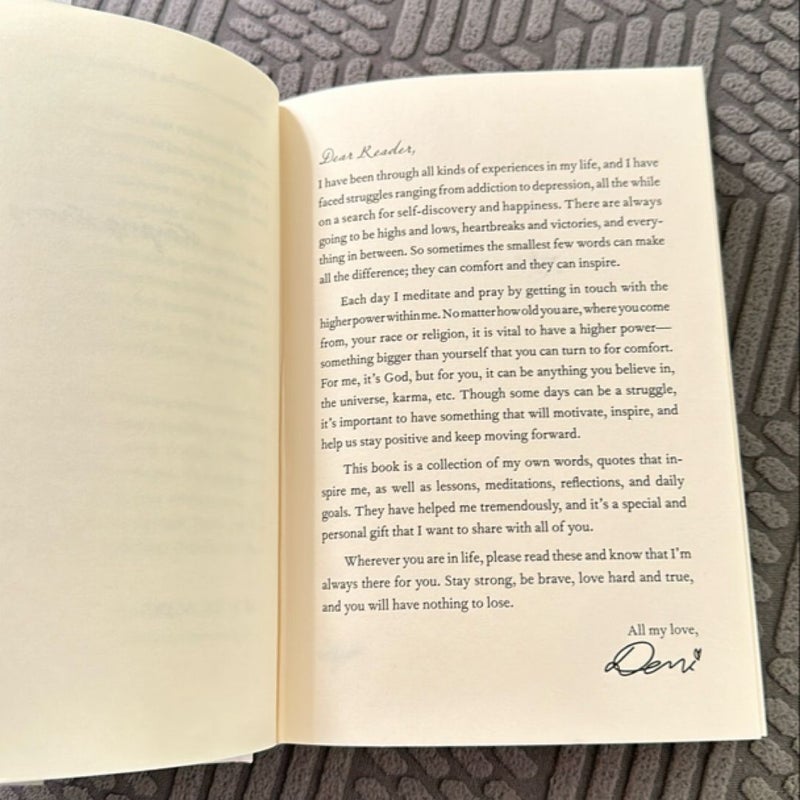 Dear Reader,
I have been through all kinds of experiences in my life, and I have
faced struggles ranging from addiction to depression, all the while
on a search for self-discovery and happiness. There are always
going to be highs and lows, heartbreaks and victories, and every-
thing in between. So sometimes the smallest few words can make
all the difference; they can comfort and they can inspire.
Each day I meditate and pray by getting in touch with the
higher power within me. No matter how old you are, where you come
from, your race or religion, it is vital to have a higher power—
something bigger than yourself that you can turn to for comfort.
For me, it's God, but for you, it can be anything you believe in,
the universe, karma, etc. Though some days can be a struggle,
it's important to have something that will motivate, inspire, and
help us stay positive and keep moving forward.
This book is a collection of my own words, quotes that in-
spire me, as well as lessons, meditations, reflections, and daily
goals. They have helped me tremendously, and it's a special and
personal gift that I want to share with all of you.
Wherever you are in life, please read these and know that I'm
always there for you. Stay strong, be brave, love hard and true,
and you will have nothing to lose.
All my love,
Demi